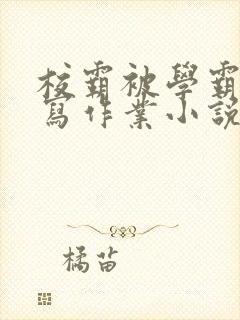 校霸被學霸
寫作業小說
橘苗